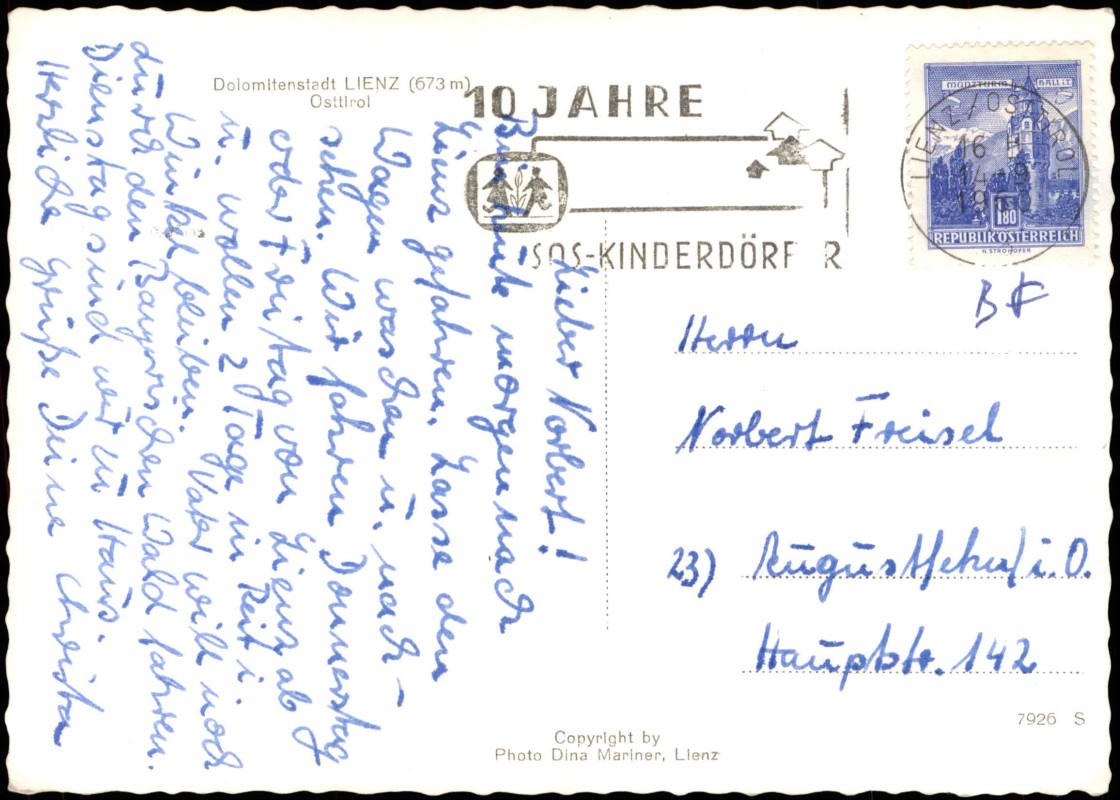 Dolomitenstadt LIENZ (673 m)
Osttirol
10 JAHRE
SOS-KINDERDÖRFER
MÜNZTURM HALL i.T.
LIENZ/OSTTIROL
16
14
19
1.80
REPUBLIK ÖSTERREICH
H. STROHOFER
Lieber Norbert!
Bin heute morgen nach
Lienz gefahren. Lasse den
Wagen waschen u. nach-
sehen. Wir fahren Donnerstag
oder Freitag von Lienz ab
u. wollen 2 Tage in Reit i.
Winkel bleiben. Vater will noch
durch den Bayrischen Wald fahren.
Dienstag sind wir zu Haus.
Herzliche Grüße Deine Christa
Herrn
Norbert Freisel
23) Augustfehn/i.O.
Hauptstr. 142
7926 S
Copyright by
Photo Dina Mariner, Lienz